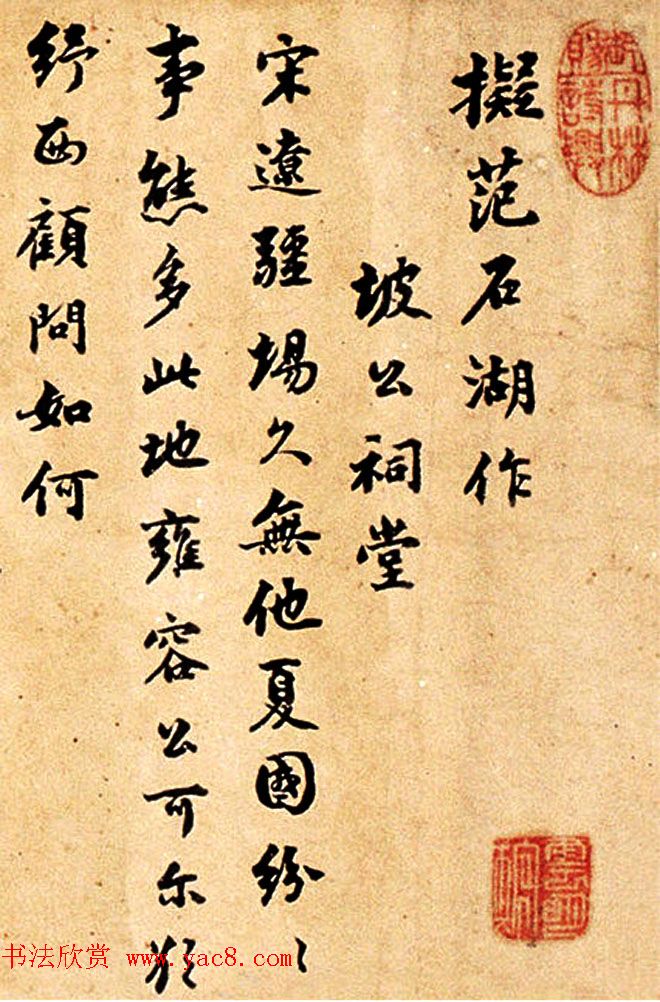 擬范石湖作
坡公祠堂
宋遼疆場久無他夏國紛〻
事態多此地雍容公可尔欵
紓西顧問如何
书法欣赏 www.yac8.com